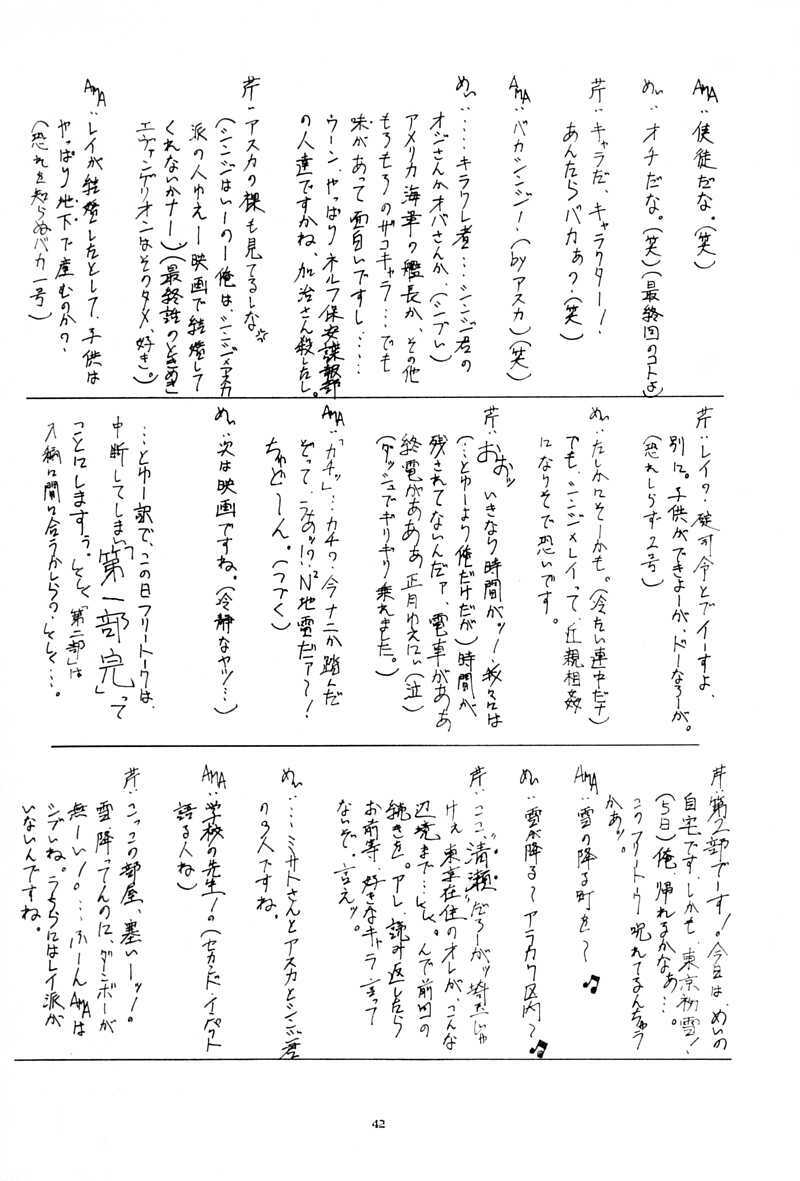 AMA:使徒だな。(笑)
めぃ:オチだな。(笑)(最終回のコトよ)
芹:キャラだ、キャラクター!
あんたらバカぁ?(笑)
AMA:バカシンジ!(byアスカ)(笑)
めぃ:‥‥キラワレ者‥‥シンジ君の
オジさんかオバさんか、(シブい)
アメリカ海軍の艦長か、その他
もろもろのザコキャラ‥‥でも
味があって面白いですし‥‥
ウーン、やっぱりネルフ保安諜報部
の人達ですかね、加治さん殺したし。
芹:アスカの裸も見てるしな
(シンジはいーのー俺は、シンジ×アスカ
派の人ゆえー映画で結婚して
くれないかナー)(最終話のときめき
エヴァンゲリオンはそのタメ、好き)。
AMA:レイが結婚したとして、子供は
やっぱり地下で産むのか?
(恐れを知らぬバカ一号)
芹:レイ?、碇司令とでイーすよ、
別に。子供ができよーが、ドーなろーが。
(恐れしらず2号)
めぃ:たしかにそーかも。(冷たい連中だナ)
でも、シンジ×レイって、近親相姦
になりそで恐いです。
芹:おおッ いきなり時間がッ!我々には
(‥とゆーより俺だけだが)時間が
残されてないんだァ、電車がああ
終電がああぁ正月ゆえにぃ(泣)
(ダッシュでギリギリ乗れました。)
AMA:「カチッ」‥‥カチ?今ナニか踏んだ
ぞって、うおッ!?N²地雷だァ〜!
ちゅど〜ん。(つづく)
めぃ:次は映画ですね。(冷静なヤツ‥)
‥とゆー訳で、この日フリートークは、
中断してしまい「第一部完」って
ことにしますぅ。そして「第二部」は
入稿に間に合うかしらの、そして‥‥。
芹:第2部でーす!。今日は、めぃの
自宅です、しかも、東京初雪!
(5日)俺、帰れるかなあ‥‥。
このフリートーク呪れてるんちゃう
かあッ。
AMA:雪の降る町を〜♫
めぃ:雪が降る〜アラカワ区内〜♫
芹:ここ、"清瀬"だろーがッ埼玉じゃ
けぇ、東京在住のオレが、こんな
辺境まで‥‥そして。んで前回の
続きを。アレ、読み返したら
お前等、好きなキャラ言って
ないぞ、言えッ。
めぃ:‥‥ミサトさんとアスカとシンジ君
の3人ですね。
AMA:学校の先生!。(セカンド・インパクト
語る人ね)
芹:こっこの部屋、寒いーッ!。
雪降ってんのに、ダンボーが
無ーい!。‥‥ふーんAMAは
シブいね。うちらにはレイ派が
いないんですね。
42